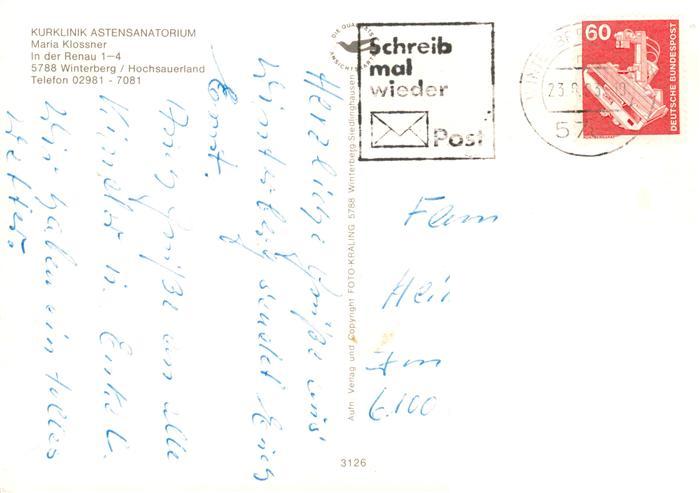 KURKLINIK ASTENSANATORIUM
Maria Klossner
In der Renau 1–4
5788 Winterberg / Hochsauerland
Telefon 02981 - 7081
Schreib
mal
wieder
Post
60
DEUTSCHE BUNDESPOST
23.8.
57
Herzliche Grüße aus
Winterberg sendet Euch
Ernst.
Auch Grüße an alle
Kinder u. Enkel.
Wir haben ein tolles
Wetter.
Aufn Verlag und Copyright FOTO-KRALING 5788 Winterberg Siedlinghausen
Fam
Hein
6100
3126